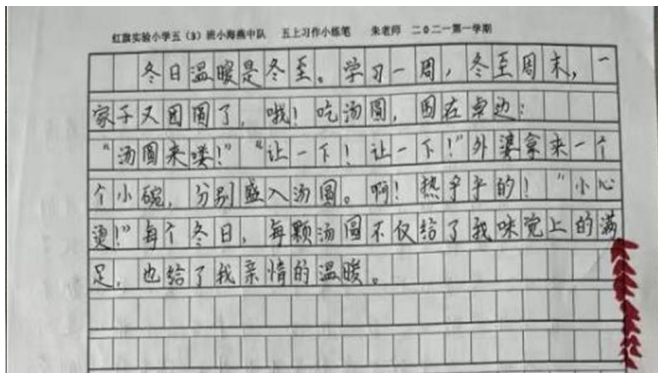 红旗实验小学五（3）班小海燕中队 五上习作小练笔 朱老师 二〇二一第一学期
冬日温暖是冬至。学习一周，冬至周末，一
家子又团圆了，哦！吃汤圆，围在桌边：
“汤圆来喽！”“让一下！让一下！”外婆拿来一个
个小碗，分别盛入汤圆。啊！热乎乎的！“小心
烫！”每个冬日，每颗汤圆不仅给了我味觉上的满
足，也给了我亲情的温暖。